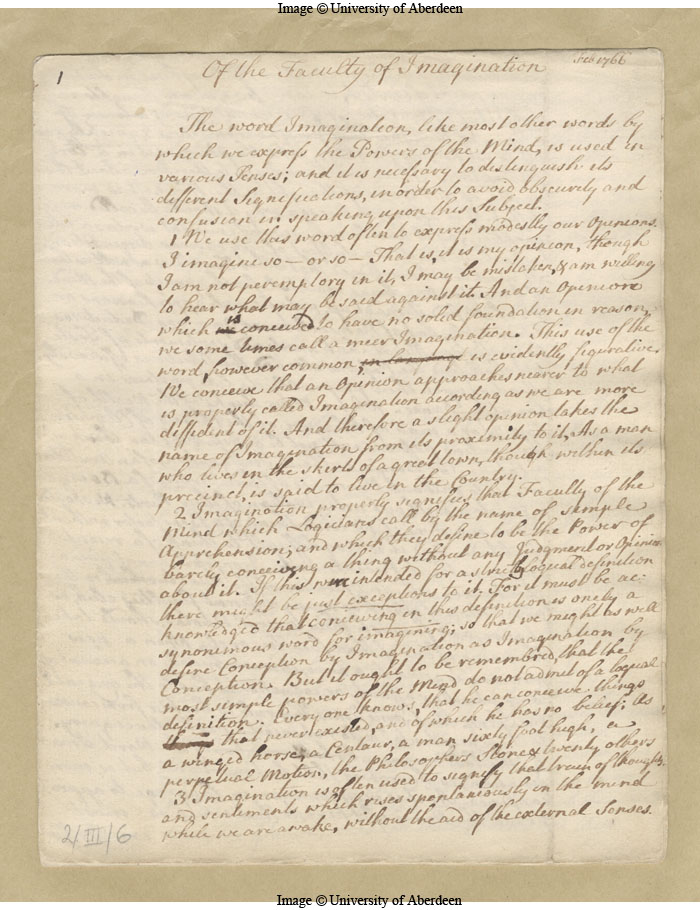 Image © University of Aberdeen
1
Of the Faculty of Imagination
Feb 1766
The word Imagination, like most other words by
which we express the Powers of the Mind, is used in
various Senses; and it is necessary to distinguish its
different Significations, in order to avoid obscurity and
confusion in speaking upon this Subject.
1 We use this word often to express modestly our Opinions.
I imagine so — or so — That is, it is my opinion, though
I am not peremptory in it, I may be mistaken, & am willing
to hear what may be said against it. And an Opinion
which is conceived to have no solid foundation in reason,
we some times call a meer Imagination. This use of the
word, however common, in language is evidently figurative.
We conceive that an Opinion approaches nearer to what
is properly called Imagination according as we are more
diffident of it. And therefore a slight opinion takes the
name of Imagination from its proximity to it, As a man
who lives in the skirts of a great town, though within its
precinct, is said to live in the Country.
2 Imagination properly signifies that Faculty of the
Mind which Logicians call by the name of simple
Apprehension; and which they define to be the Power of
barely conceiving a thing without any Judgment or Opinion
about it. If this were intended for a strictly logical definition
there might be just exceptions to it. For it must be ac-
knowledged that conceiving in this definition is onely a
synonimous word for imagining; so that we might as well
define Conception by Imagination as Imagination by
Conception. But it ought to be remembred, that the
most simple powers of the Mind do not admit of a logical
definition. Every one knows, that he can conceive things
that never existed, and of which he has no belief; As
a winged horse, a Centaur, a man sixty foot high, a
perpetual Motion, the Philosophers Stone & twenty others
3 Imagination is often used to signify that train of thoughts
and sentiments which rises spontaniously in the mind
while we are awake, without the aid of the external Senses.
2/III/6
Image © University of Aberdeen